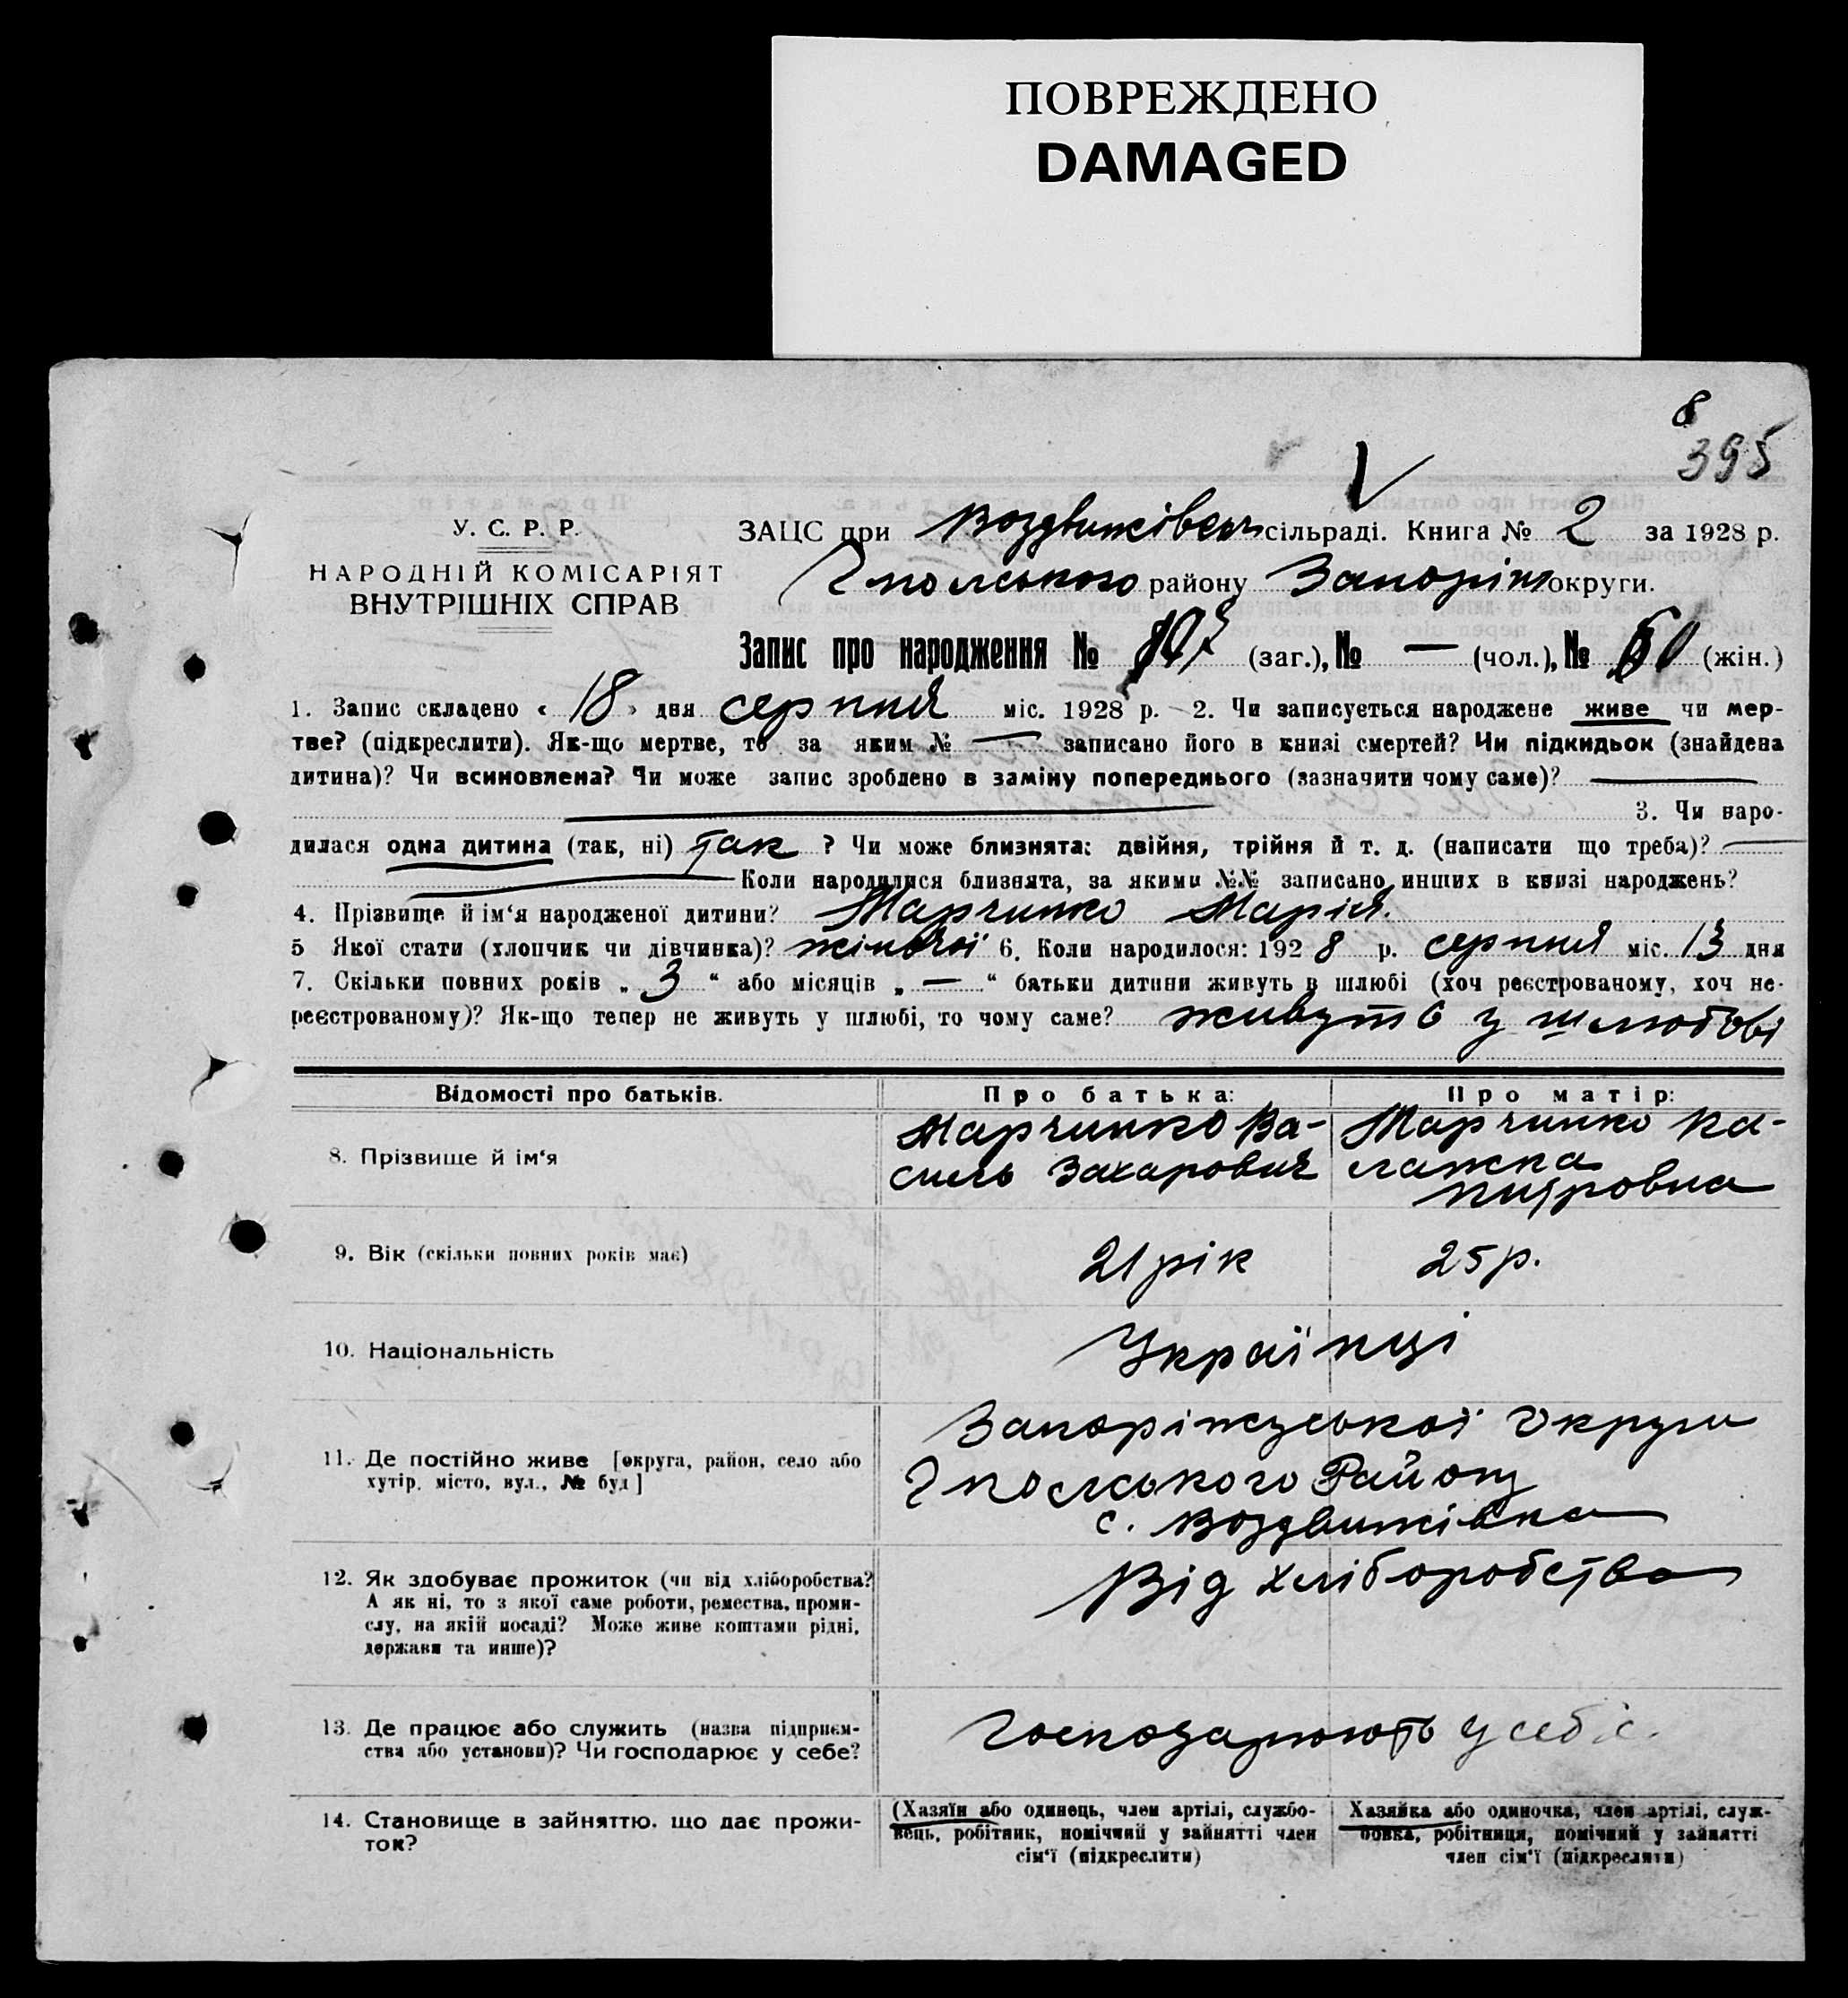 ПОВРЕЖДЕНО
DAMAGED
8
395
У. С. Р. Р.
НАРОДНІЙ КОМІСАРІЯТ
ВНУТРІШНІХ СПРАВ
ЗАЦС при Воздвижівськ сільраді. Книга № 2 за 1928 р.
Гполського району Запоріж округи.
Запис про народження № (заг.), № — (чол.), № (жін.)
1. Запис складено « 18 » дня серпня міс. 1928 р. 2. Чи записується народжене живе чи мер-
тве? (підкреслити). Як-що мертве, то за яким № — записано його в книзі смертей? Чи підкидьок (знайдена
дитина)? Чи всиновлена? Чи може запис зроблено в заміну попереднього (зазначити чому саме)? —
3. Чи наро-
дилася одна дитина (так, ні) так ? Чи може близнята: двійня, трійня й т. д. (написати що треба)? —
— Коли народилися близнята, за якими №№ записано инших в книзі народжень?
4. Прізвище й ім‘я народженої дитини? Марчинко Марія.
5 Якої стати (хлопчик чи дівчинка)? жіночої 6. Коли народилося: 192 8 р. серпня міс. 13 дня
7. Скільки повних років „ 3 “ або місяців „ — “ батьки дитини живуть в шлюбі (хоч реєстрованому, хоч не-
реєстрованому)? Як-що тепер не живуть у шлюбі, то чому саме? живуть у шлюбові
Відомості про батьків. Про батька: Про матір:
8. Прізвище й ім‘я
Марчинко Ва-
силь Захарович
Марчинко Ка-
лажка
Питровна
9. Вік (скільки повних років має) 21 рік 25 р.
10. Національність Українці
11. Де постійно живе [округа, район, село або
хутір, місто, вул., № буд]
Запоріжуської Округи
Гполського Району
с. Воздвижівка
12. Як здобуває прожиток (чи від хліборобства?
А як ні, то з якої саме роботи, ремества, проми-
слу, на якій посаді? Може живе коштами рідні,
держави та инше)?
Від хліборобства
13. Де працює або служить (назва підприєм-
ства або установи)? Чи господарює у себе?
Господарюють у себе.
14. Становище в зайняттю, що дає прожи-
ток?
(Хазяїн або одинець, член артілі, службо-
вець, робітник, помічний у зайнятті член
сім‘ї (підкреслити)
Хазяйка або одиночка, член артілі, служ-
бовка, робітниця, помічний у зайнятті
член сім‘ї (підкреслити)